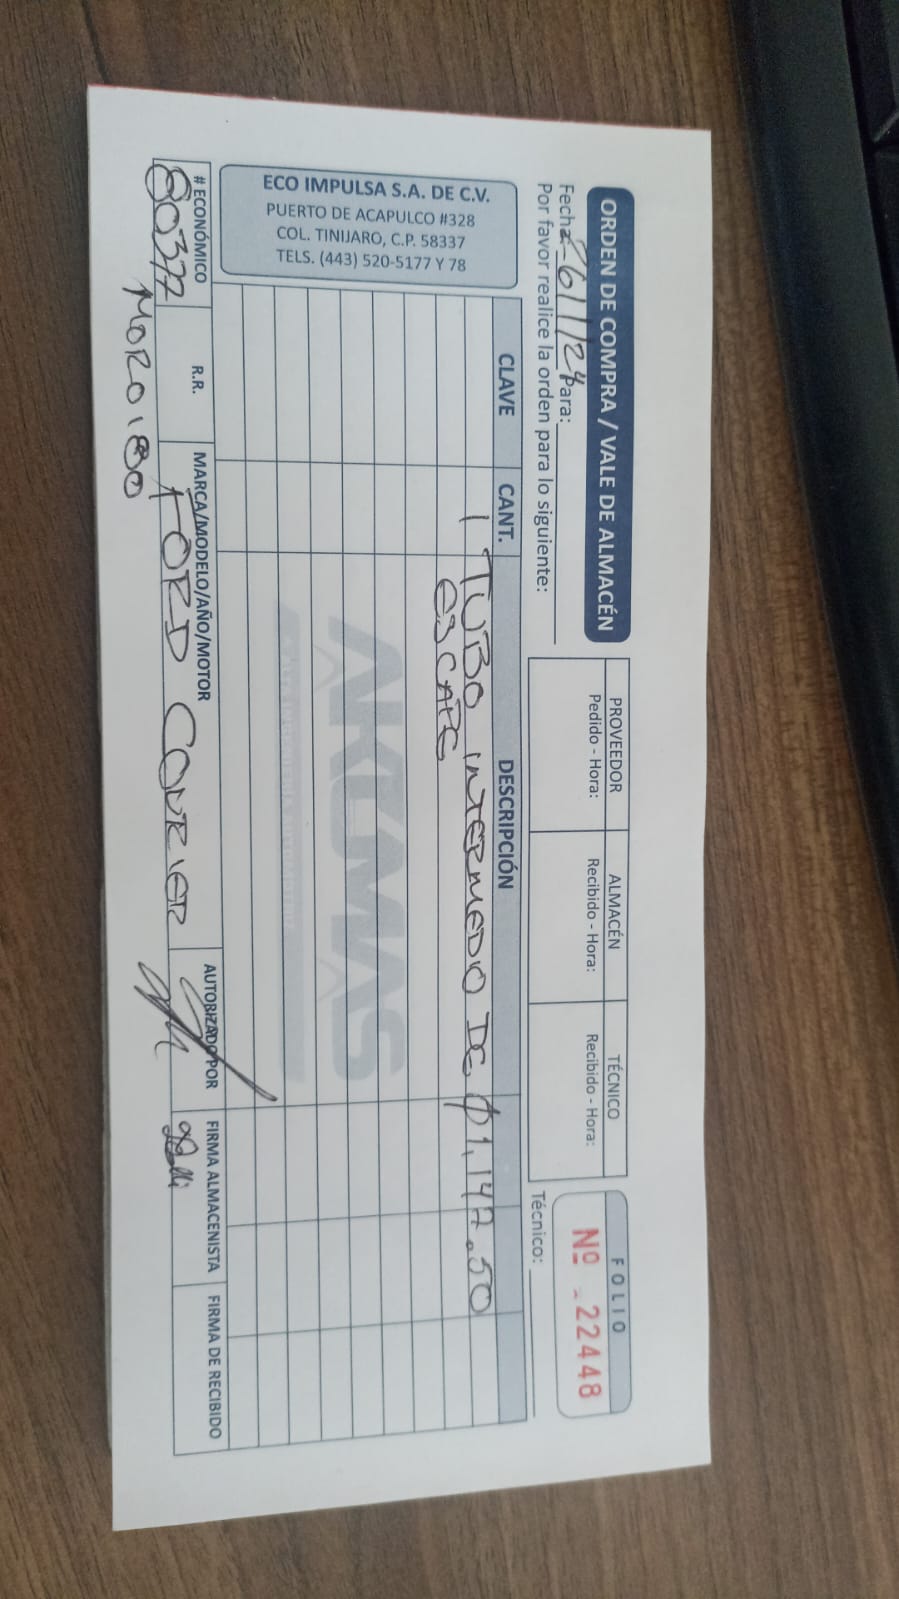 ORDEN DE COMPRA / VALE DE ALMACÉN
Fecha: 26/1/24 Para:
Por favor realice la orden para lo siguiente:
PROVEEDOR
Pedido - Hora:
ALMACÉN
Recibido - Hora:
TÉCNICO
Recibido - Hora:
FOLIO
Nº 22448
Técnico:
ECO IMPULSA S.A. DE C.V.
PUERTO DE ACAPULCO #328
COL. TINIJARO, C.P. 58337
TELS. (443) 520-5177 Y 78
CLAVE CANT. DESCRIPCIÓN
1 TUBO INTERMEDIO DE $1,147.50
ESCAPE
AKUMAS
# ECONÓMICO R.R. MARCA/MODELO/AÑO/MOTOR AUTORIZADO POR FIRMA ALMACENISTA FIRMA DE RECIBIDO
80377 FORD COURIER
MORO180